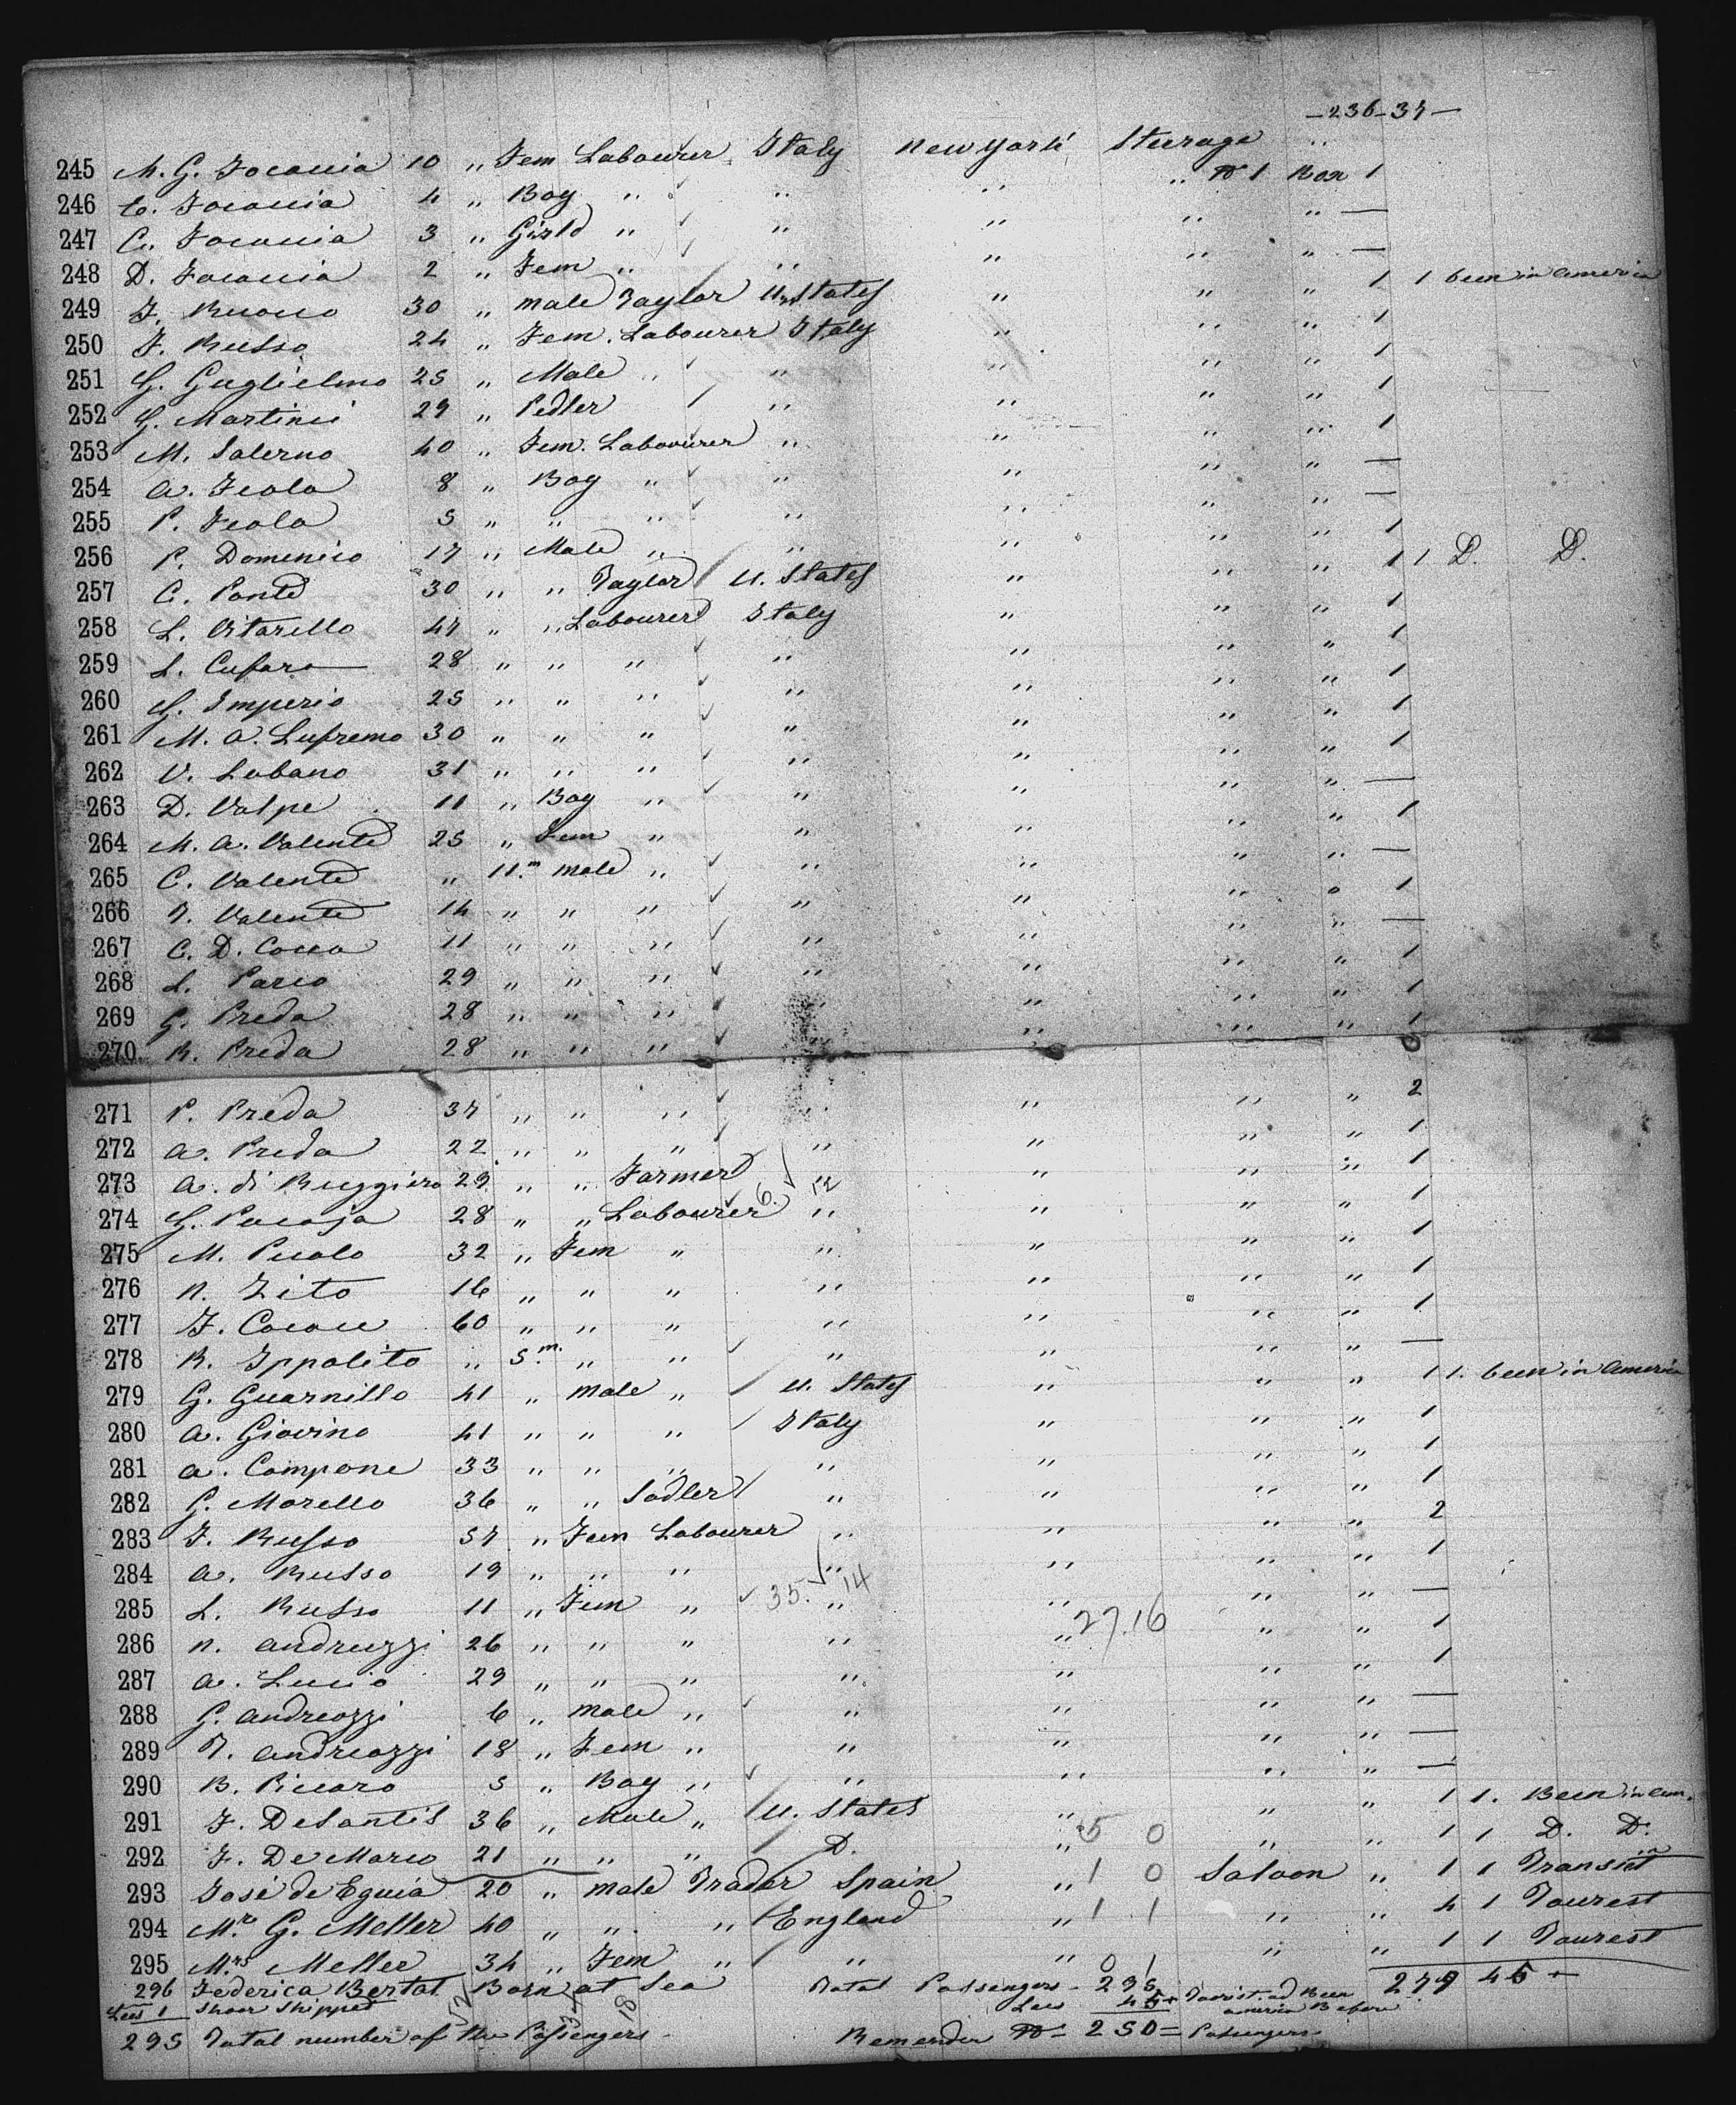 -236-37-
245 M. G. Focaccia 10 " Fem Labourer Italy New York Steerage "
246 C. Focaccia 4 " Boy " " " " No 1 Box 1
247 C. Focaccia 3 " Girld " " " " " —
248 D. Focaccia 2 " Fem " " " " " —
249 F. Ruocco 30 " male Taylor U. States " " " 1 1 been in america
250 F. Russo 24 " Fem. Labourer Italy " " " 1
251 G. Guglielmo 25 " Male " " " " " 1
252 G. Martinei 29 " Pedler " " " " 1
253 M. Salerno 40 " Fem. Labourer " " " " 1
254 A. Feola 8 " Boy " " " " " —
255 P. Feola 5 " " " " " " " —
256 P. Domenico 17 " Male " " " " " 1
257 C. Ponte 30 " " Taylor U. States " " " 1 1 D. D.
258 L. Vitarello 47 " " Labourer Italy " " " 1
259 L. Cufaro 28 " " " " " " " 1
260 G. Imperio 25 " " " " " " " 1
261 M. A. Lupremo 30 " " " " " " " 1
262 V. Lobano 31 " " " " " " " 1
263 D. Volpe 11 " Boy " " " " " —
264 M. A. Valente 25 " Fem " " " " " 1
265 C. Valente " 11.m male " " " " " —
266 T. Valente 14 " " " " " " " 1
267 C. D. Cocco 11 " " " " " " " —
268 L. Pario 29 " " " " " " " 1
269 G. Preda 28 " " " " " " " 1
270 R. Preda 28 " " " " " " " 1
271 P. Preda 37 " " " " " " " 2
272 A. Preda 22 " " " " " " " 1
273 A. di Ruggiero 29 " " Farmer " " " " 1
6. 12
274 G. Pacaja 28 " " Labourer " " " " 1
275 M. Picolo 32 " Fem " " " " " 1
276 N. Zito 16 " " " " " " " 1
277 F. Cococe 60 " " " " " " " 1
278 R. Ippolito " 5.m. " " " " " " —
279 G. Guarnillo 41 " male " U. States " " " 1 1. been in America
280 A. Giovino 41 " " " Italy " " " 1
281 A. Compone 33 " " " " " " " 1
282 G. Morello 36 " " Sadler " " " " 1
283 F. Russo 57 " Fem Labourer " " " " 2
284 A. Russo 19 " " " " " " " 1
35. 14
285 L. Russo 11 " Fem " " " " " —
27.16
286 N. Andruzzi 26 " " " " " " " 1
287 A. Lucio 29 " " " " " " " 1
288 G. Andreozzi 6 " male " " " " " —
289 T. Andreozzi 18 " Fem " " " " " —
290 B. Piccaro 5 " Boy " " " " " —
291 F. DeSantis 36 " Male " U. States " " " 1 1. Been in am.
292 F. De Marco 21 " " " D. " 5 0 " " 1 1 D. D.
293 José de Eguia 20 " male Trader Spain " 1 0 Saloon " 1 1 in Transit
294 Mr. G. Meller 40 " " " England " 1 1 " " 4 1 Tourest
295 Mrs Meller 34 " Fem " " " 0 1 " " 1 1 Tourest
296 Federica Bertat Born at Sea Total Passengers - 295 279 45 +
Less 1 Shoor Shipped Less 45 + Tourist ad Been america Before
295 Total number of the Passengers - Remender No = 250 = Passengers -
52 34 18